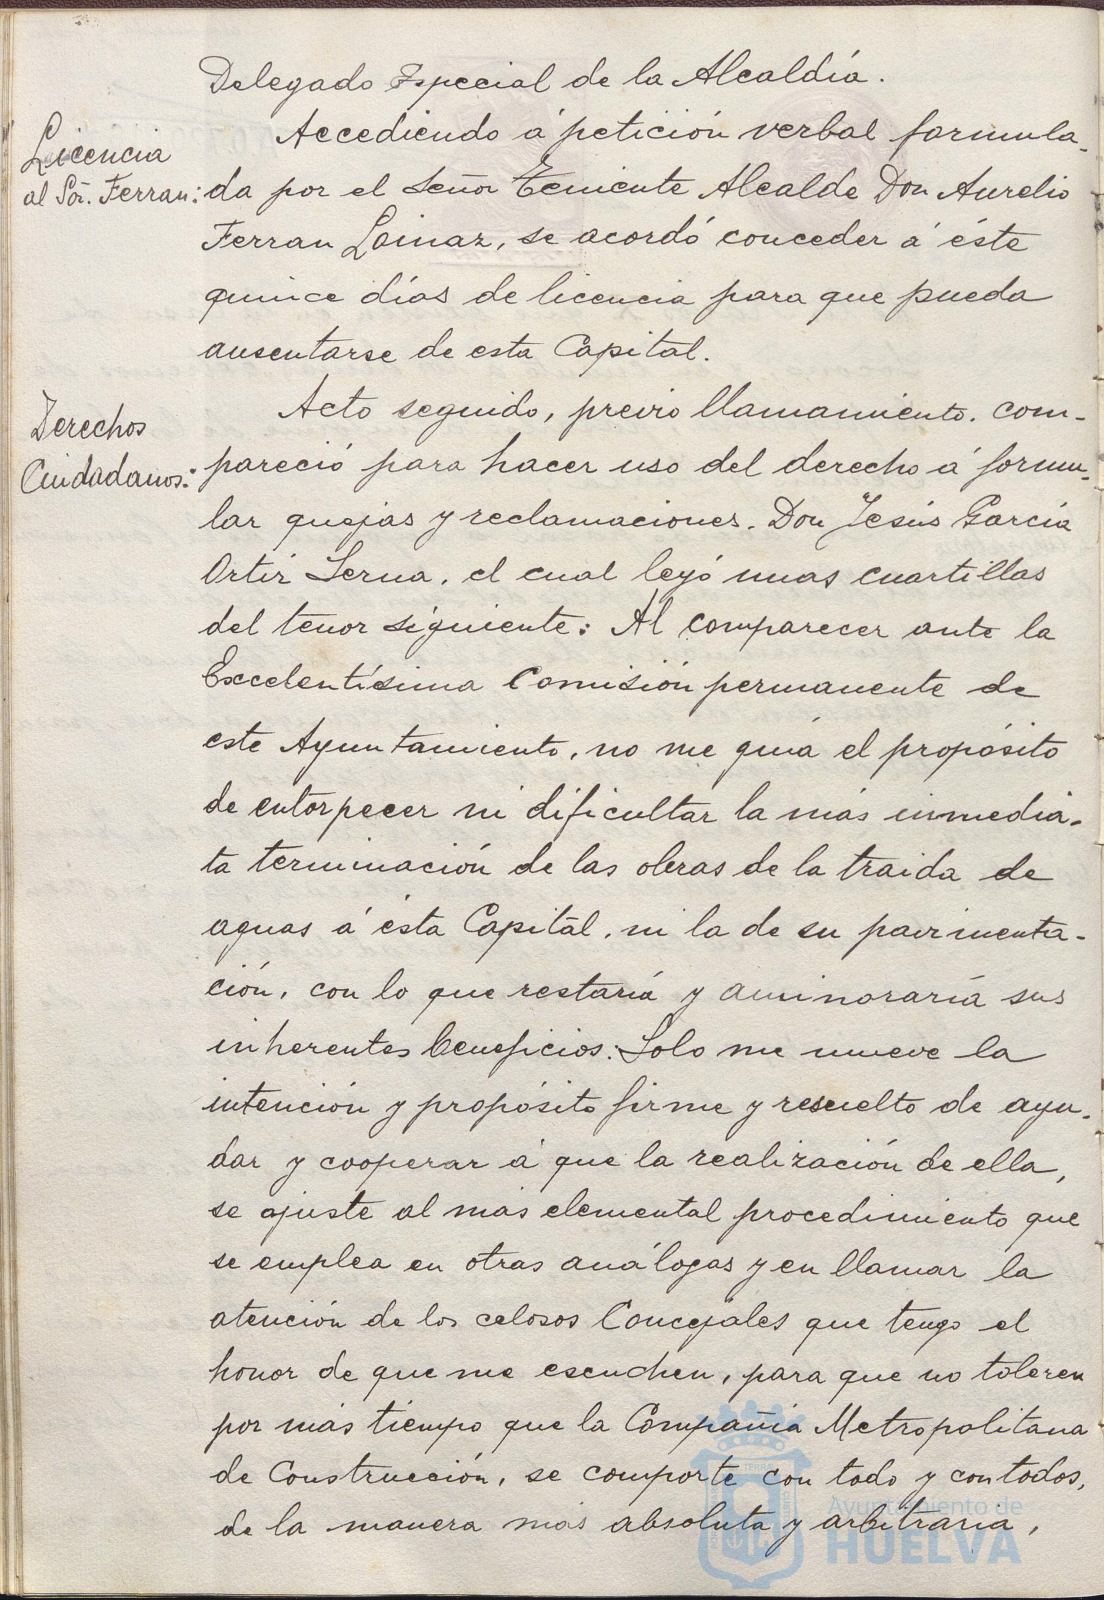 Delegado Especial de la Alcaldía.
Licencia
al Sor. Ferran:
Accediendo á petición verbal formula-
da por el señor Teniente Alcalde Don Aurelio
Ferran Loinaz, se acordó conceder á éste
quince días de licencia para que pueda
ausentarse de esta Capital.
Derechos
Ciudadanos:
Acto seguido, previo llamamiento. com-
pareció para hacer uso del derecho á formu-
lar quejas y reclamaciones. Don Jesús García
Ortiz Serna, el cual leyó unas cuartillas
del tenor siguiente: Al comparecer ante la
Excelentísima Comisión permanente de
este Ayuntamiento, no me guía el propósito
de entorpecer ni dificultar la más inmedia-
ta terminación de las obras de la traida de
aguas á ésta Capital, ni la de su pavimenta-
ción, con lo que restaría y aminoraría sus
inherentes beneficios: Solo me mueve la
intención y propósito firme y resuelto de ayu-
dar y cooperar á que la realización de ella,
se ajuste al mas elemental procedimiento que
se emplea en otras análogas y en llamar la
atención de los celosos Concejales que tengo el
honor de que me escuchen, para que no toleren
por más tiempo que la Compañía Metropolitana
de Construcción, se comporte con todo y con todos,
de la manera más absoluta y arbitraria,
Ayuntamiento de
HUELVA